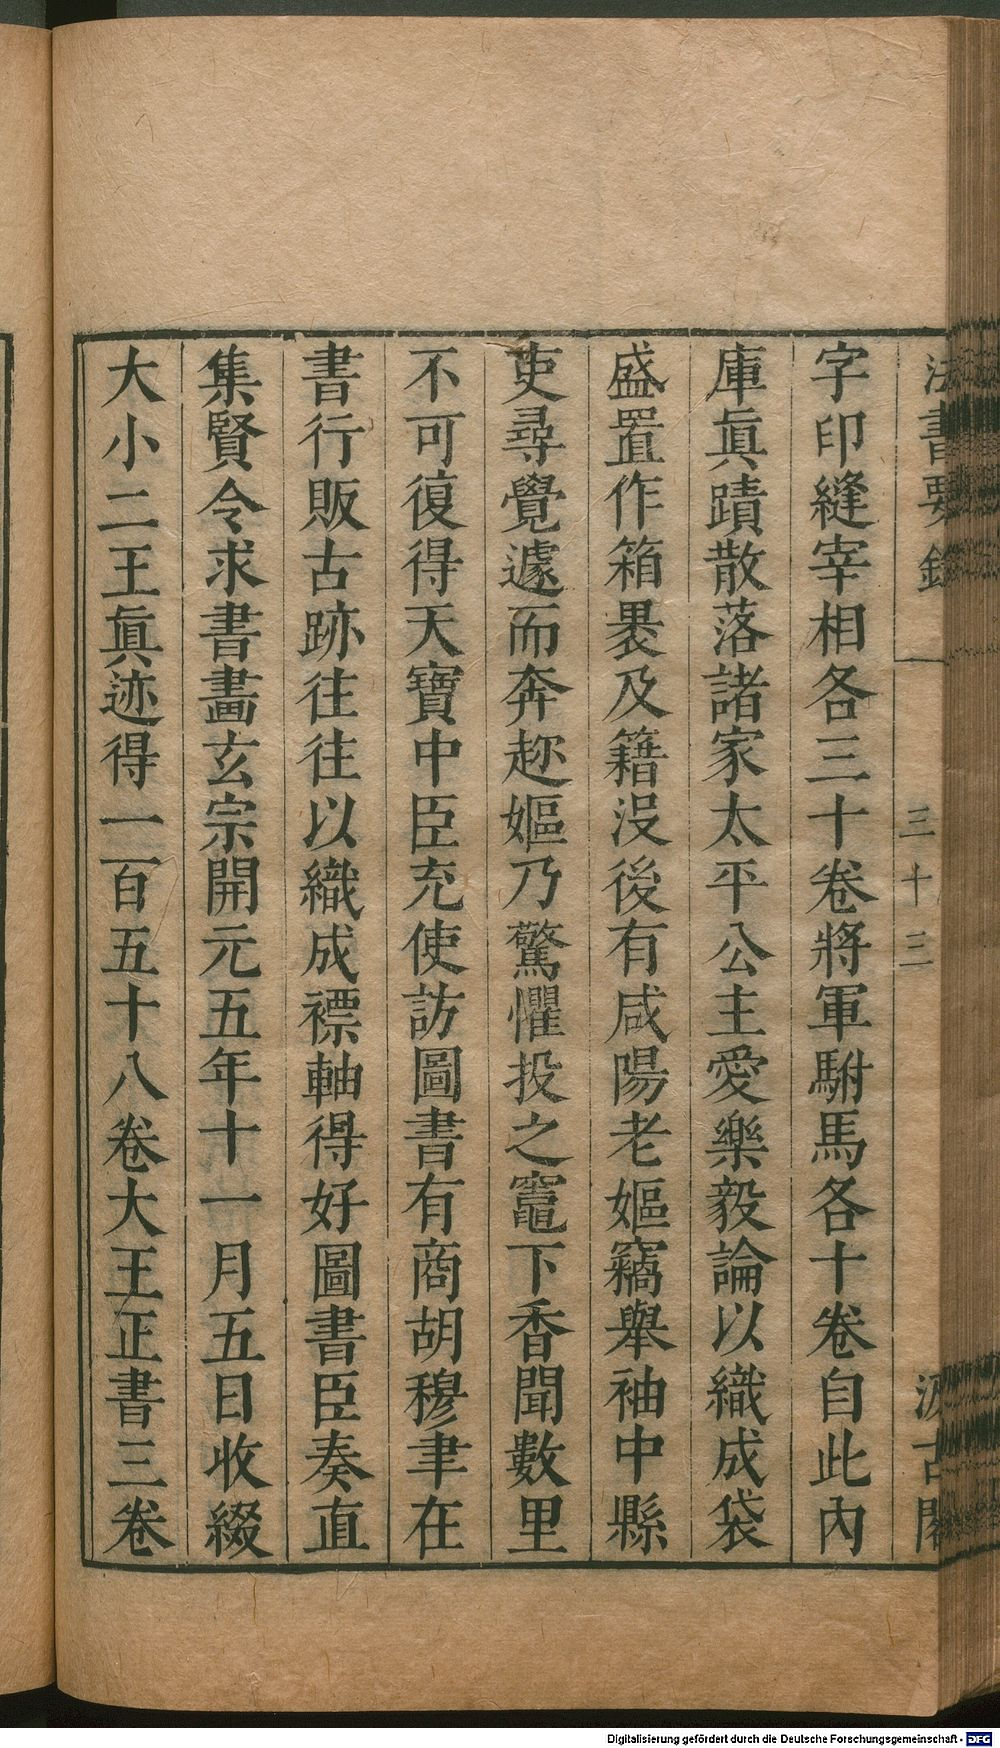 法書要錄
三十三
汲古閣
字印縫宰相各三十卷將軍駙馬各十卷自此內
庫眞蹟散落諸家太平公主愛樂毅論以織成袋
盛置作箱褁及籍沒後有咸陽老嫗竊舉袖中縣
吏尋覺遽而奔趂嫗乃驚懼投之竈下香聞數里
不可復得天寶中臣充使訪圖書有商胡穆聿在
書行販古跡往往以織成褾軸得好圖書臣奏直
集賢令求書畫玄宗開元五年十一月五日收綴
大小二王眞迹得一百五十八卷大王正書三卷
Digitalisierung gefördert durch die Deutsche Forschungsgemeinschaft - DFG